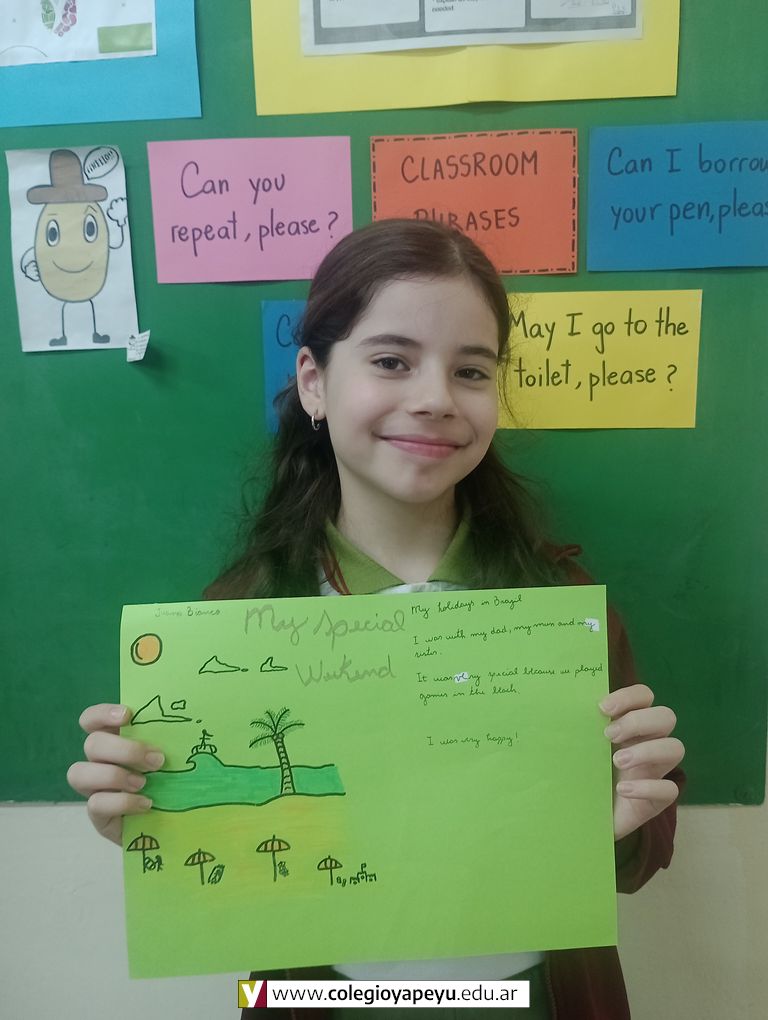 needed
HELLO!
Can you
repeat, please?
CLASSROOM
PHRASES
Can I borrow
your pen, pleas
May I go to the
toilet, please?
My Special
Weekend
My holidays in Brazil
I was with my dad, my mum and my
sister.
It was very special because we played
games in the beach.
I was very happy!
www.colegioyapeyu.edu.ar